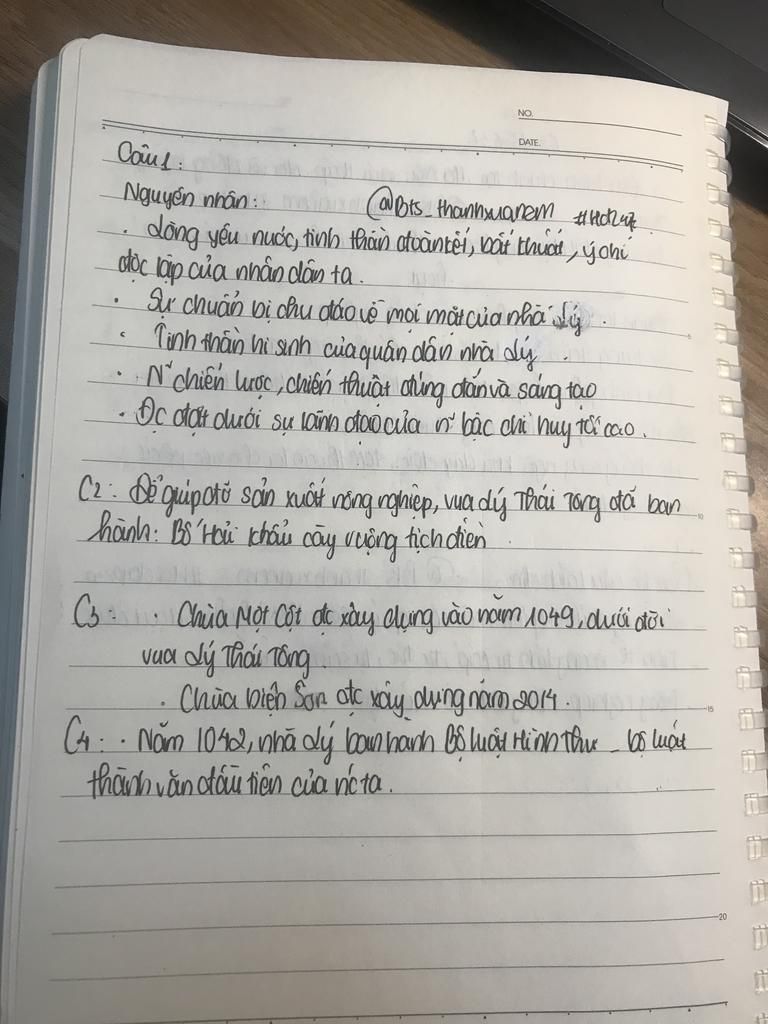 NO.
DATE.
Câu 1:
Nguyên nhân: @Bts_thanhxuanem
. Lòng yêu nước, tinh thần đoàn kết, bất khuất, ý chí
độc lập của nhân dân ta.
. Sự chuẩn bị chu đáo về mọi mặt của nhà Lý.
. Tinh thần hi sinh của quân dân nhà Lý.
. N~ chiến lược, chiến thuật đúng đắn và sáng tạo
. Đc đặt dưới sự lãnh đạo của n~ bậc chỉ huy tối cao.
C2: Để giúp đỡ sản xuất nông nghiệp, vua Lý Thái Tông đã ban
10
hành: Bố Hải khẩu cày ruộng tịch điền.
C3: . Chùa Một Cột đc xây dựng vào năm 1049, dưới đời
vua Lý Thái Tông
. Chùa Diện Sơn đc xây dựng năm 2014.
15
C4: . Năm 1042, nhà Lý ban hành Bộ luật Hình Thư - bộ luật
thành văn đầu tiên của nc ta.
20